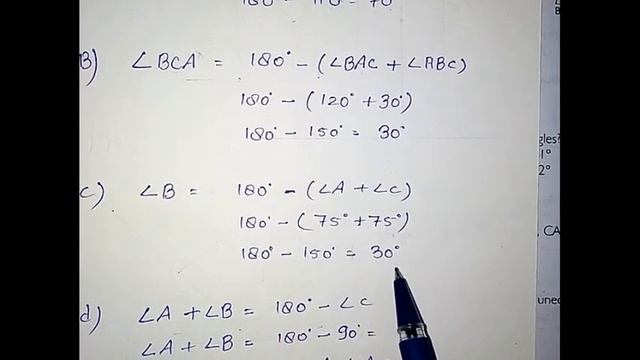 180° - 110° = 70°
B) ∠BCA = 180° - (∠BAC + ∠ABC)
180° - (120° + 30°)
180° - 150° = 30°
C) ∠B = 180° - (∠A + ∠C)
180° - (75° + 75°)
180° - 150° = 30°
d) ∠A + ∠B = 180° - ∠C
∠A + ∠B = 180° - 90° =
gles?
1°
2°
, CA